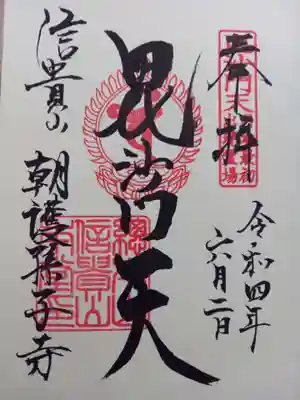 奉拝
令和四年
六月二日
毘沙門天
信貴山
朝護孫子寺
總
信貴山